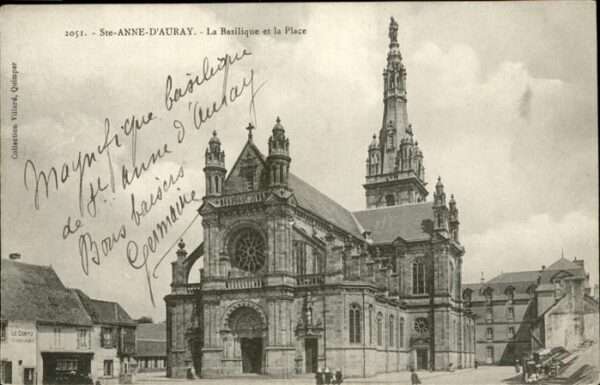 2051. - Ste-ANNE-D'AURAY. - La Basilique et la Place
Collection Villard, Quimper
Magnifique basilique
de Ste Anne d'Auray
Bons baisers
Germaine